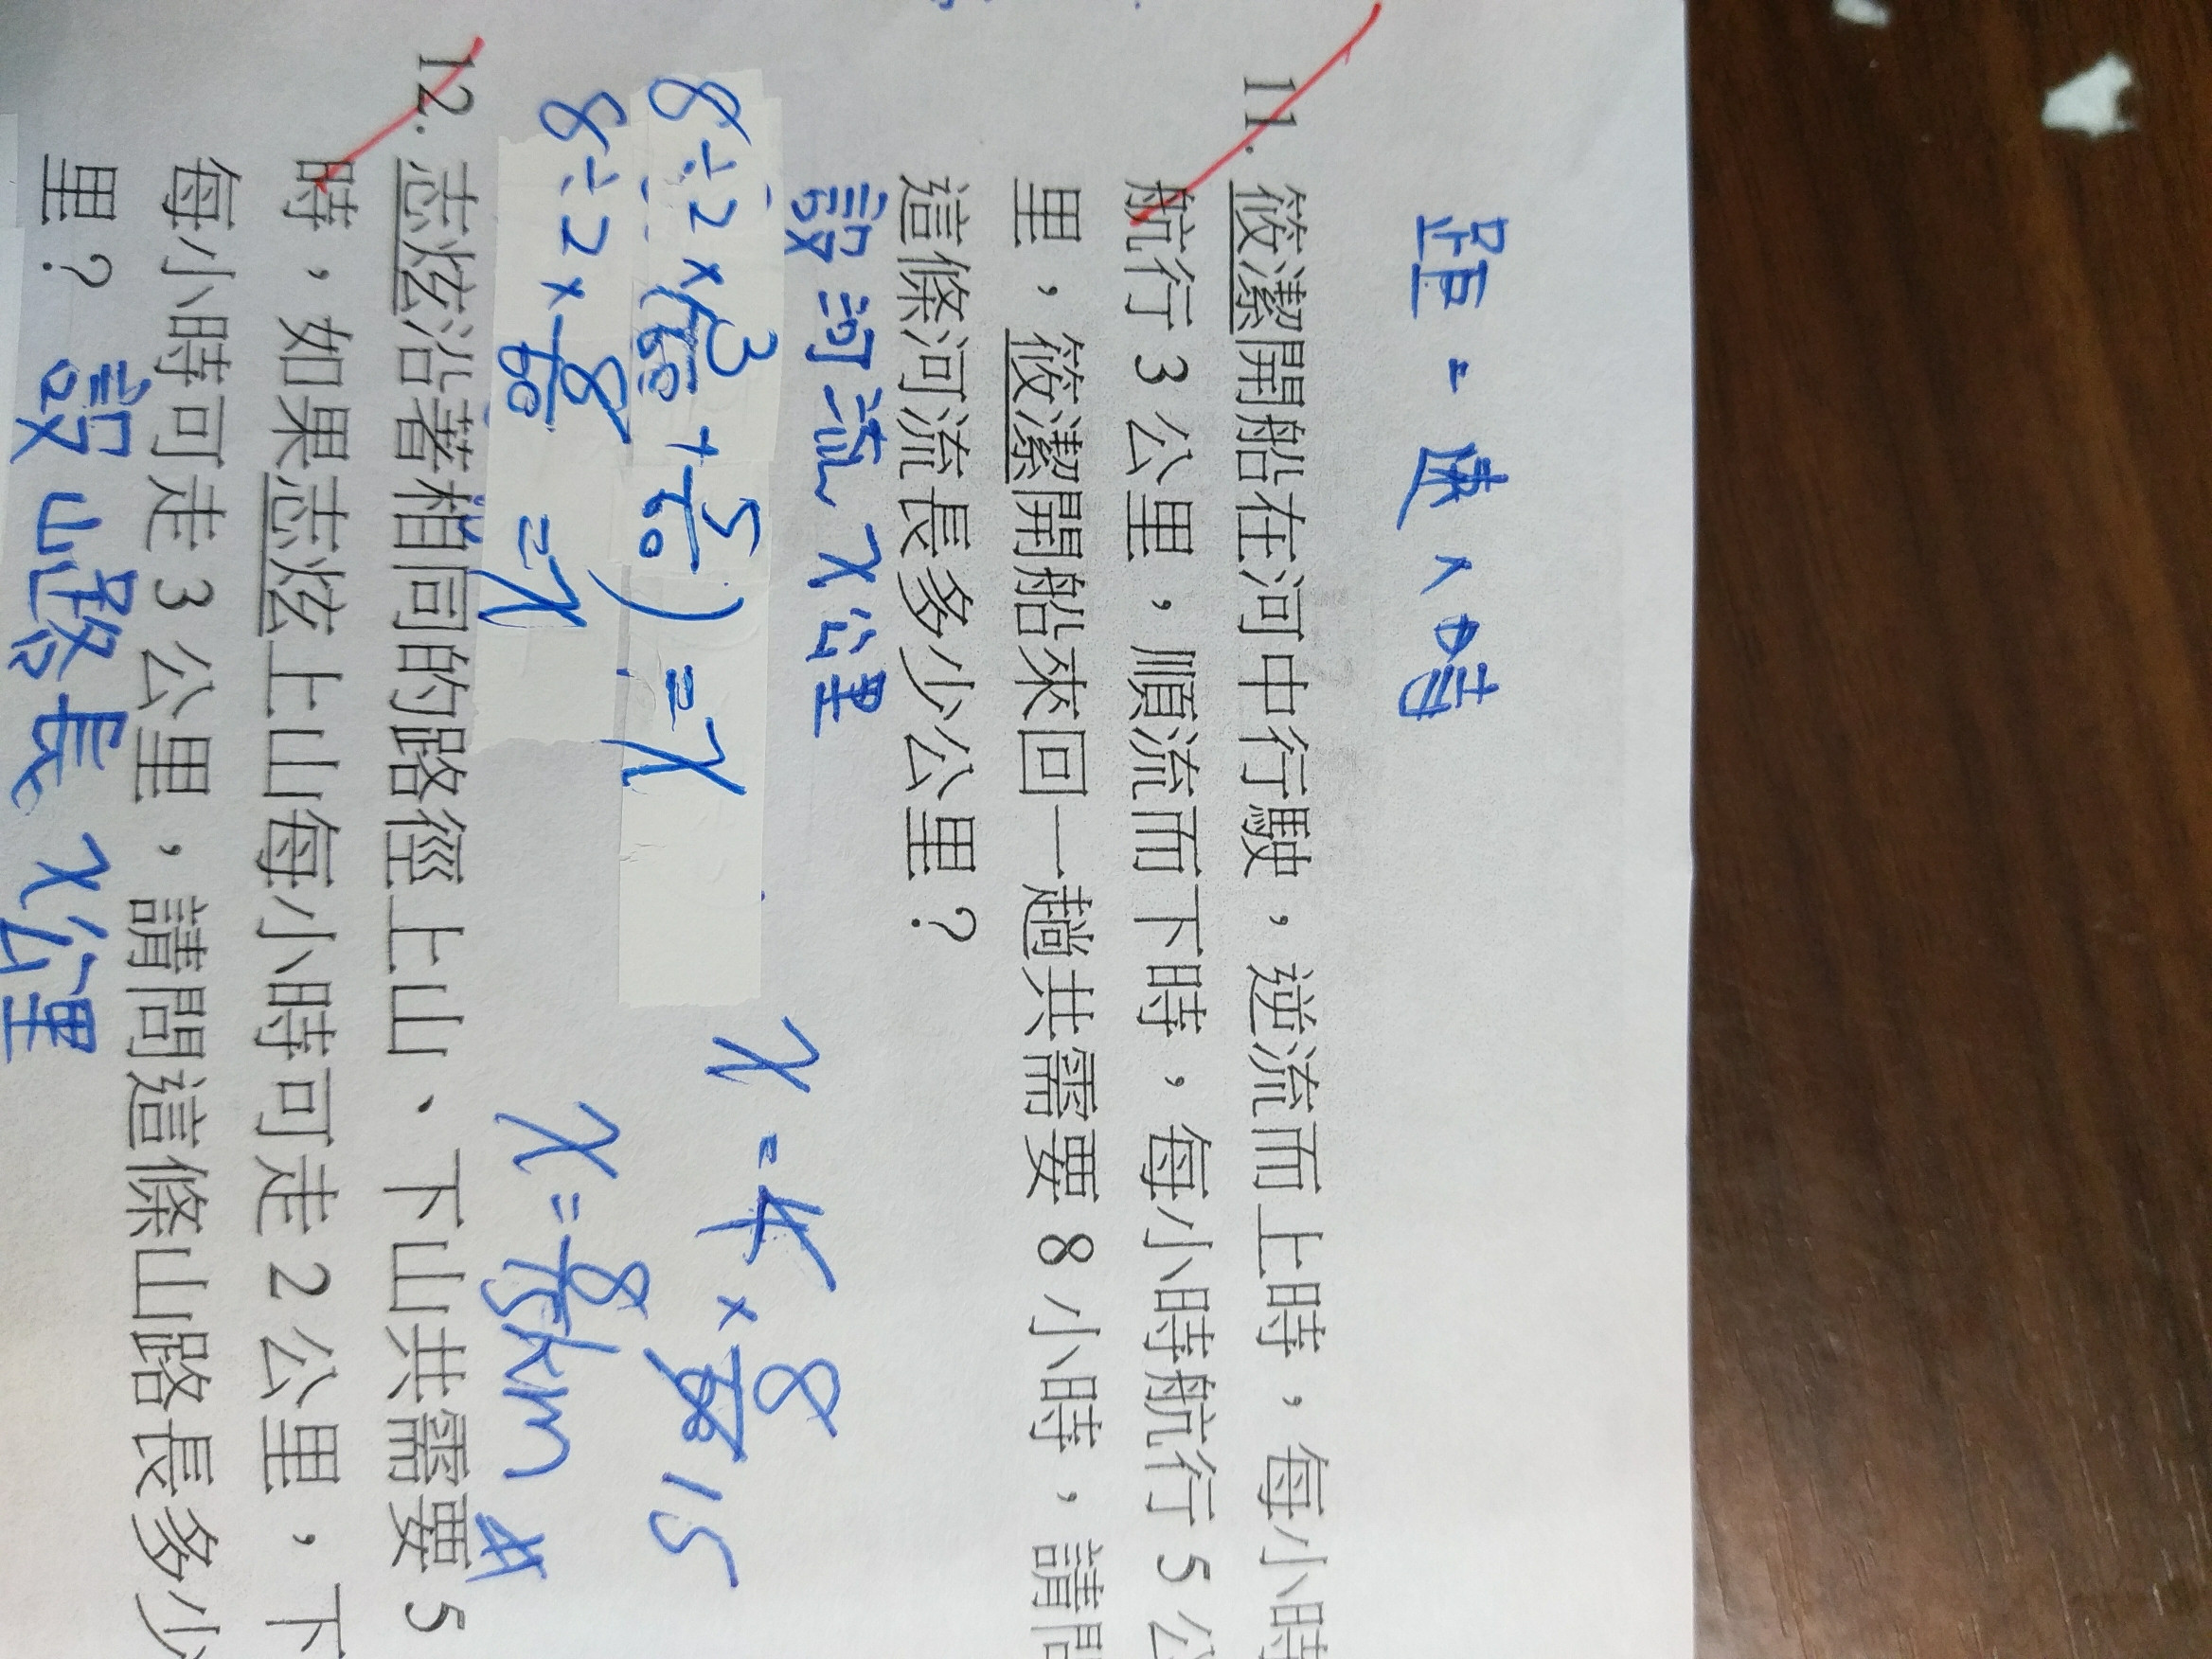 距=速×時
11. 筱潔開船在河中行駛，逆流而上時，每小時
航行 3 公里，順流而下時，每小時航行 5 公
里，筱潔開船來回一趟共需要 8 小時，請問
這條河流長多少公里？
設河流 x 公里
8÷2×(3/60+5/60)=x
8÷2×8/60=x
x=4×8/60 15
x=8/15km #
12. 志炫沿著相同的路徑上山、下山共需要 5
時，如果志炫上山每小時可走 2 公里，下
每小時可走 3 公里，請問這條山路長多少
里？ 設山路長 x 公里